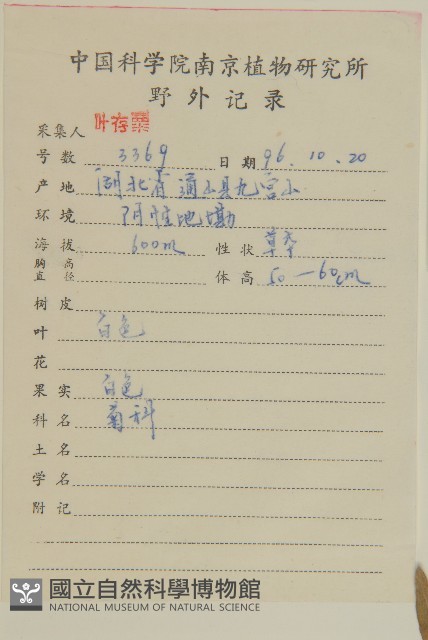 中国科学院南京植物研究所
野外记录
采集人 叶存粟
号数 3369 日期 96.10.20
产地 湖北省通山县九宫山
环境 阴性地墈
海拔 600m 性状 草本
胸高直径 体高 50—60cm
树皮
叶 白色
花
果实 白色
科名 菊科
土名
学名
附记
國立自然科學博物館
NATIONAL MUSEUM OF NATURAL SCIENCE